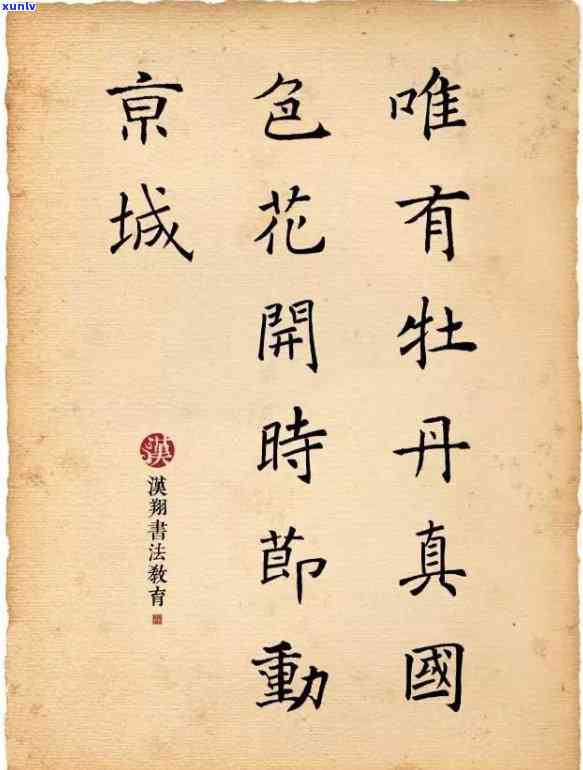 xunlv
唯有牡丹真國
色花開時節動
京城
漢
漢翔書法教育